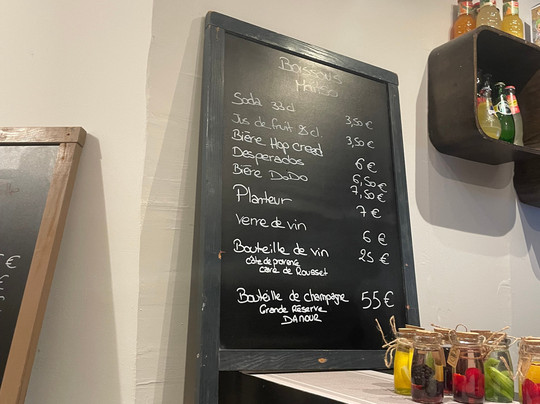 Boissons
Soda 33 cl 3,50 €
Jus de fruit 25 cl. 3,50 €
Bière Hop cread 6 €
Desperados 6,50 €
Bière DoDo 7,50 €
Planteur 7 €
Verre de vin 6 €
Bouteille de vin 25 €
côte de provence
carré de Rousset
Bouteille de champagne 55 €
Grande Réserve
DANOUR
€
€